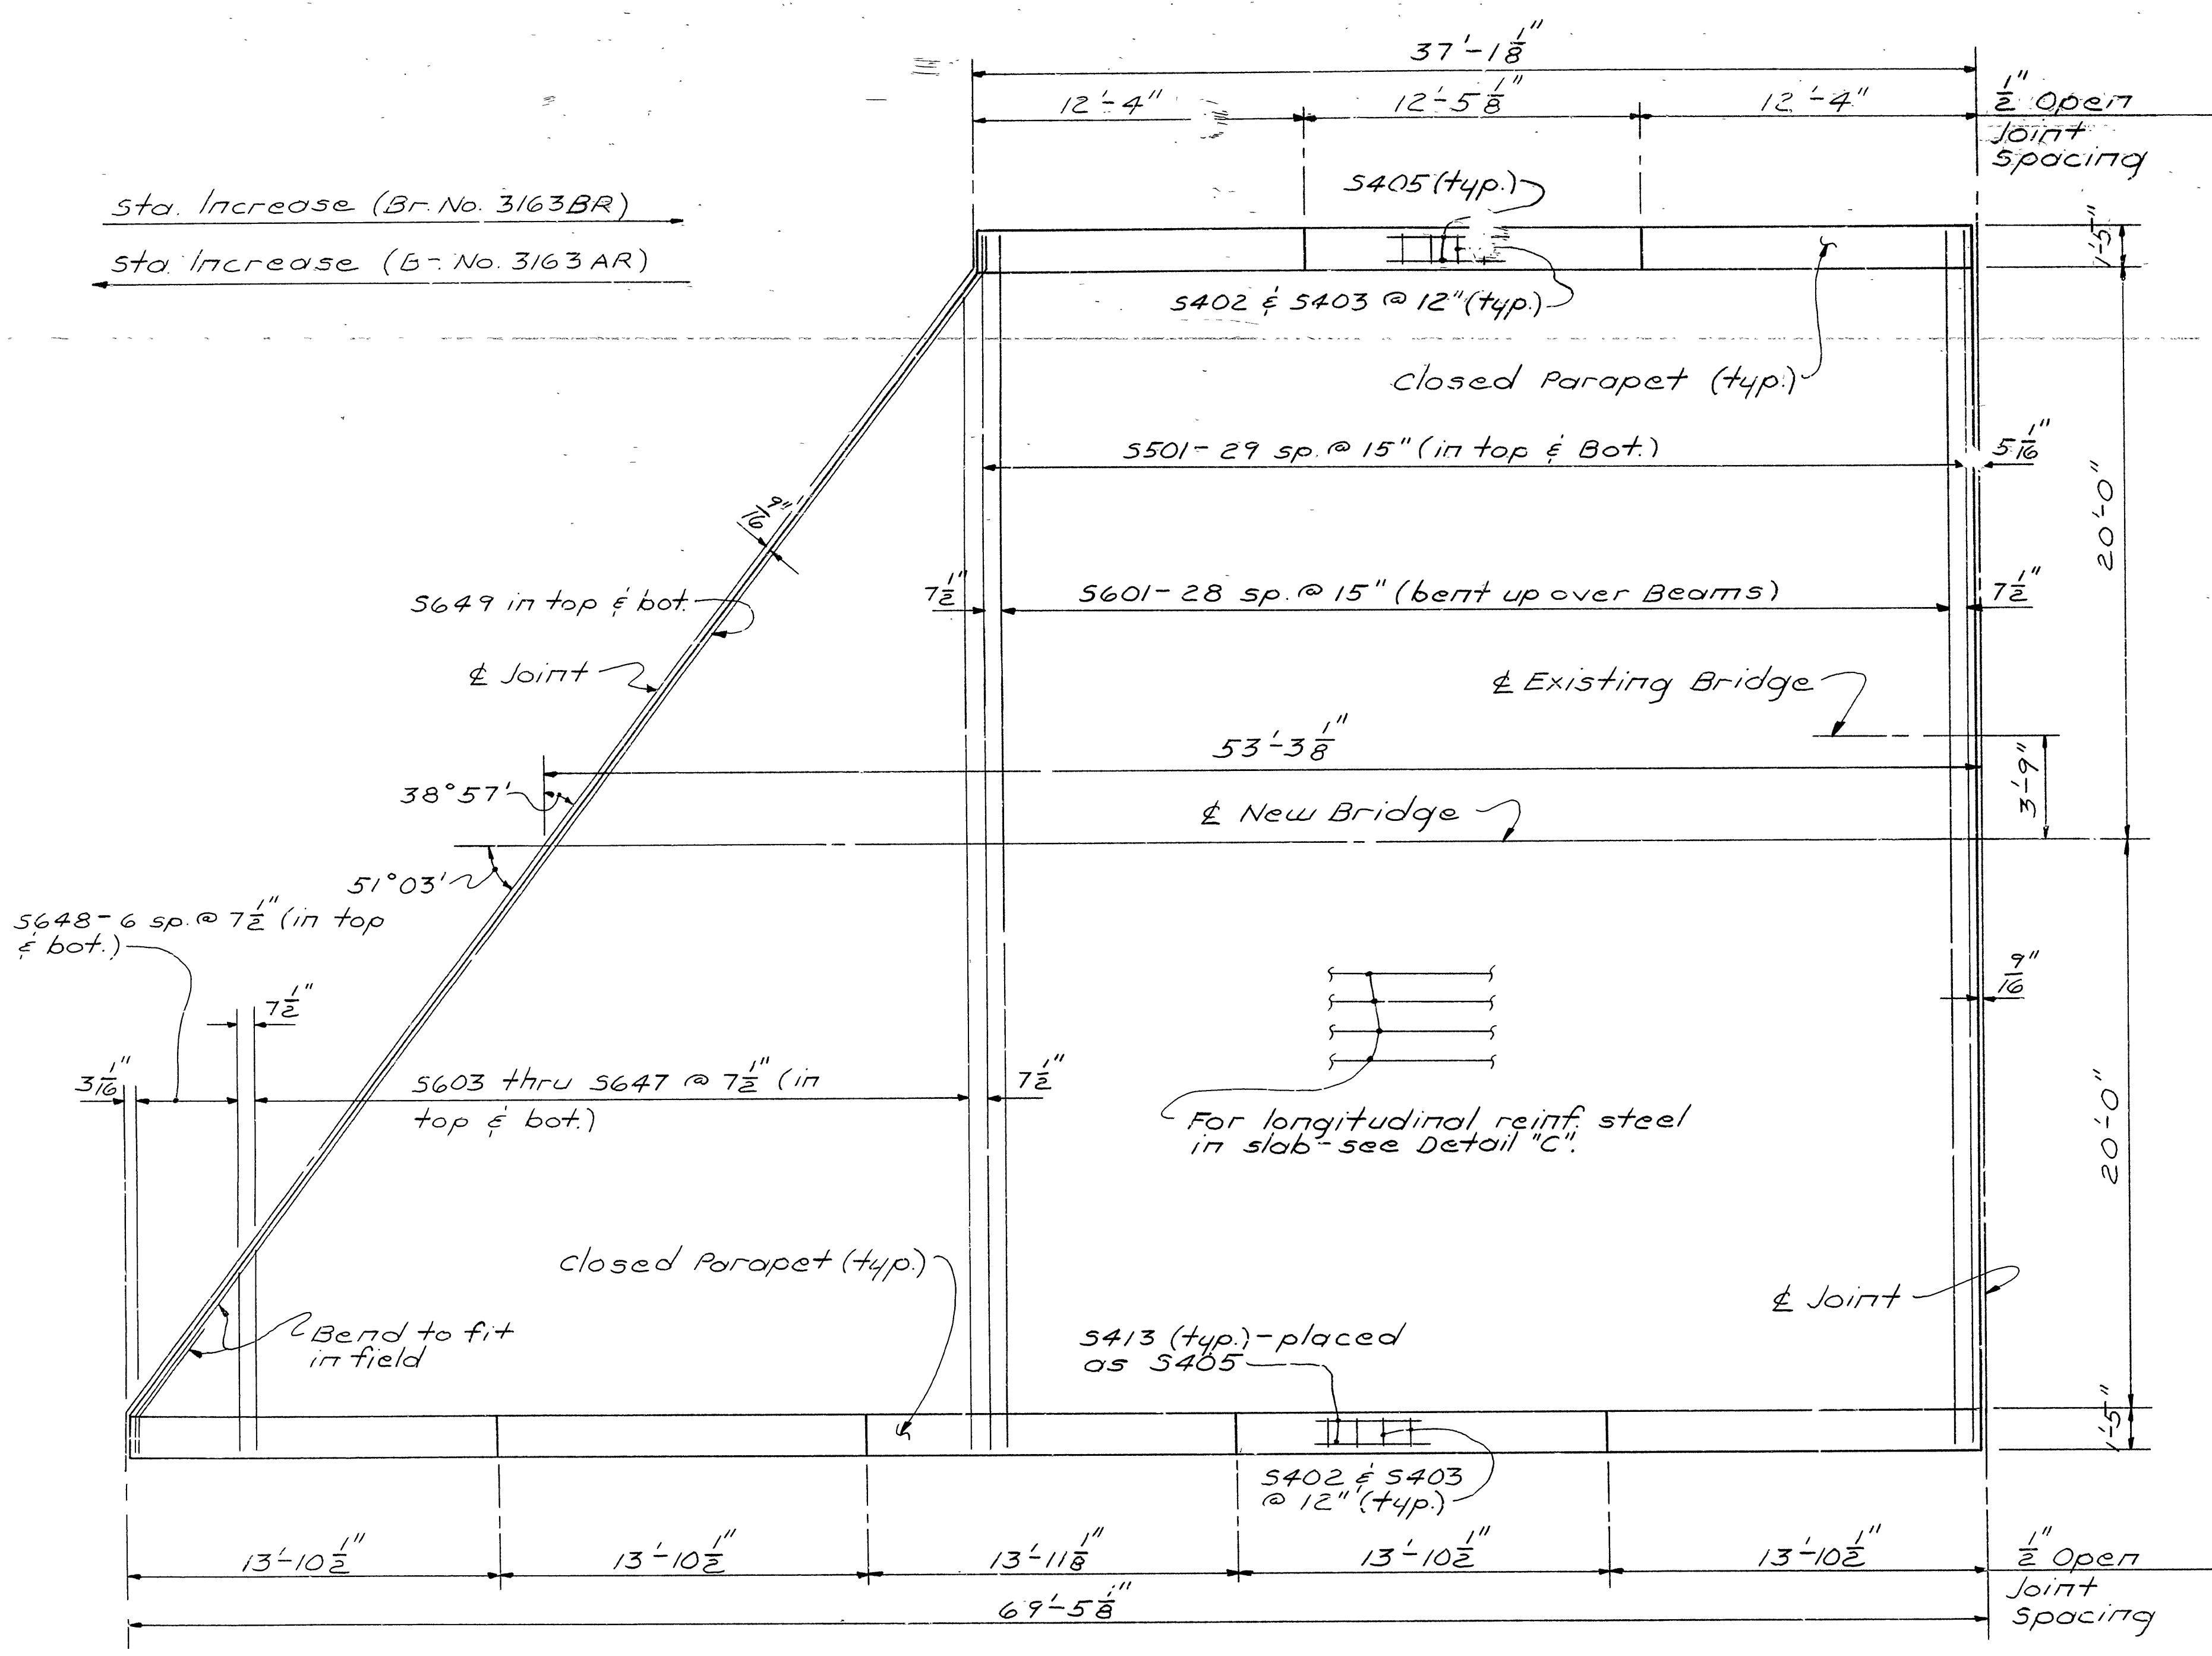 37'-1 1/8"
12'-4" 12'-5 1/8" 12'-4" 1/2" Open
Joint
Spacing
S405 (typ.)
Sta. Increase (Br. No. 3163BR)
Sta. Increase (B-. No. 3163AR)
1'-5"
S402 & S403 @ 12" (typ.)
Closed Parapet (typ.)
S501- 29 sp. @ 15" (in top & Bot.)
5 1/16"
20'-0"
9/16"
S649 in top & bot.
7 1/2"
S601- 28 sp. @ 15" (bent up over Beams)
7 1/2"
℄ Joint
℄ Existing Bridge
53'-3 1/8"
3'-9"
38°57'
℄ New Bridge
51°03'
S648- 6 sp. @ 7 1/2" (in top
& bot.)
7 1/2"
9/16"
3 1/16"
S603 thru S647 @ 7 1/2" (in
top & bot.)
7 1/2"
For longitudinal reinf. steel
in slab - see Detail "C".
20'-0"
Closed Parapet (typ.)
℄ Joint
Bend to fit
in field
S413 (typ.) - placed
as S405
1'-5"
S402 & S403
@ 12" (typ.)
13'-10 1/2" 13'-10 1/2" 13'-11 1/8" 13'-10 1/2" 13'-10 1/2" 1/2" Open
Joint
Spacing
69'-5 1/8"